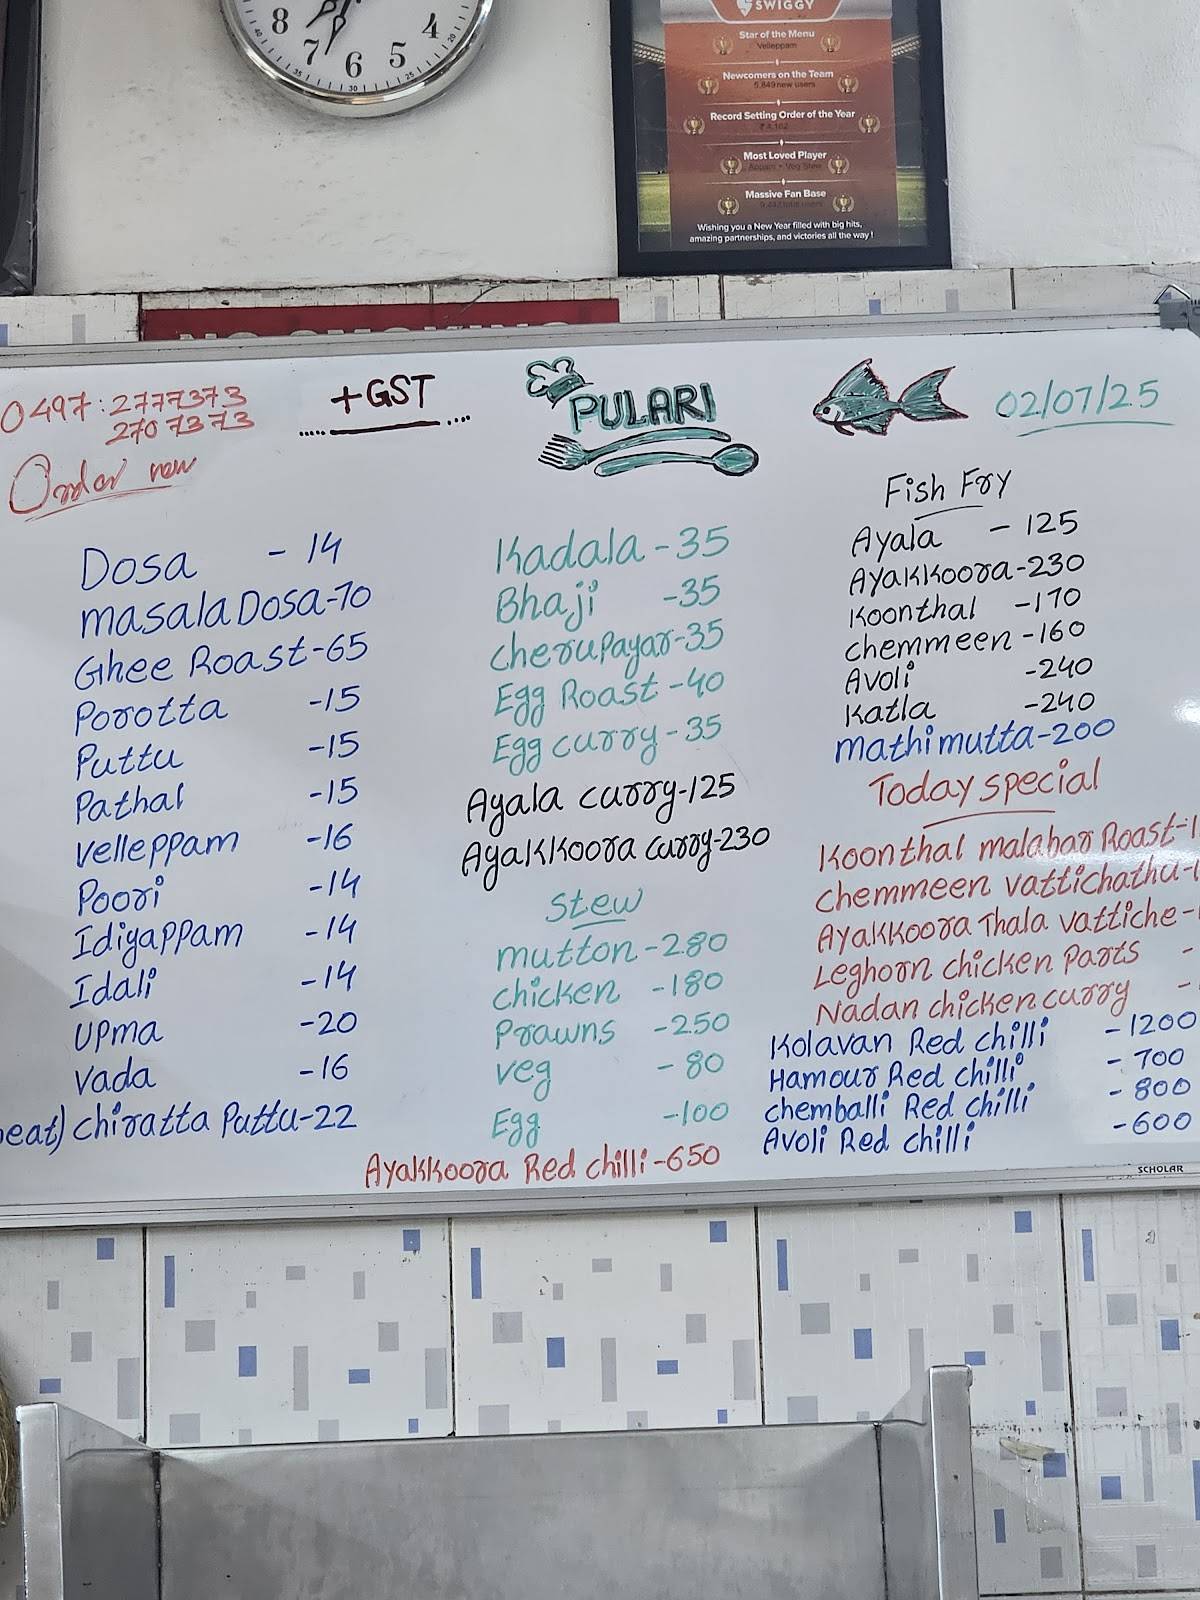 8 7 6 5 4
SWIGGY
Star of the Menu
Velleppam
Newcomers on the Team
5,849 new users
Record Setting Order of the Year
Most Loved Player
Appam + Veg Stew
Massive Fan Base
Wishing you a New Year filled with big hits,
amazing partnerships, and victories all the way!
NO SMOKING
0497:2777373
2707373
Order now
+GST
PULARI
02/07/25
Dosa - 14
masala Dosa-70
Ghee Roast-65
Porotta -15
Puttu -15
Pathal -15
velleppam -16
Poori -14
Idiyappam -14
Idali -14
UPma -20
vada -16
eat) chiratta Puttu-22
Kadala-35
Bhaji -35
cherupayar-35
Egg Roast-40
Egg curry-35
Ayala curry-125
Ayakkoora curry-230
Stew
mutton-280
chicken -180
Prawns -250
veg -80
Egg -100
Ayakkoora Red chilli-650
Fish Fry
Ayala -125
Ayakkoora-230
Koonthal -170
chemmeen-160
Avoli -240
Katla -240
mathi mutta-200
Today special
Koonthal malabar Roast-1
chemmeen vattichathu-1
Ayakkoora Thala vattiche-1
Leghorn chicken Parts -
Nadan chicken curry -
Kolavan Red chilli -1200
Hamour Red chilli -700
chemballi Red chilli -800
Avoli Red chilli -600
SCHOLAR